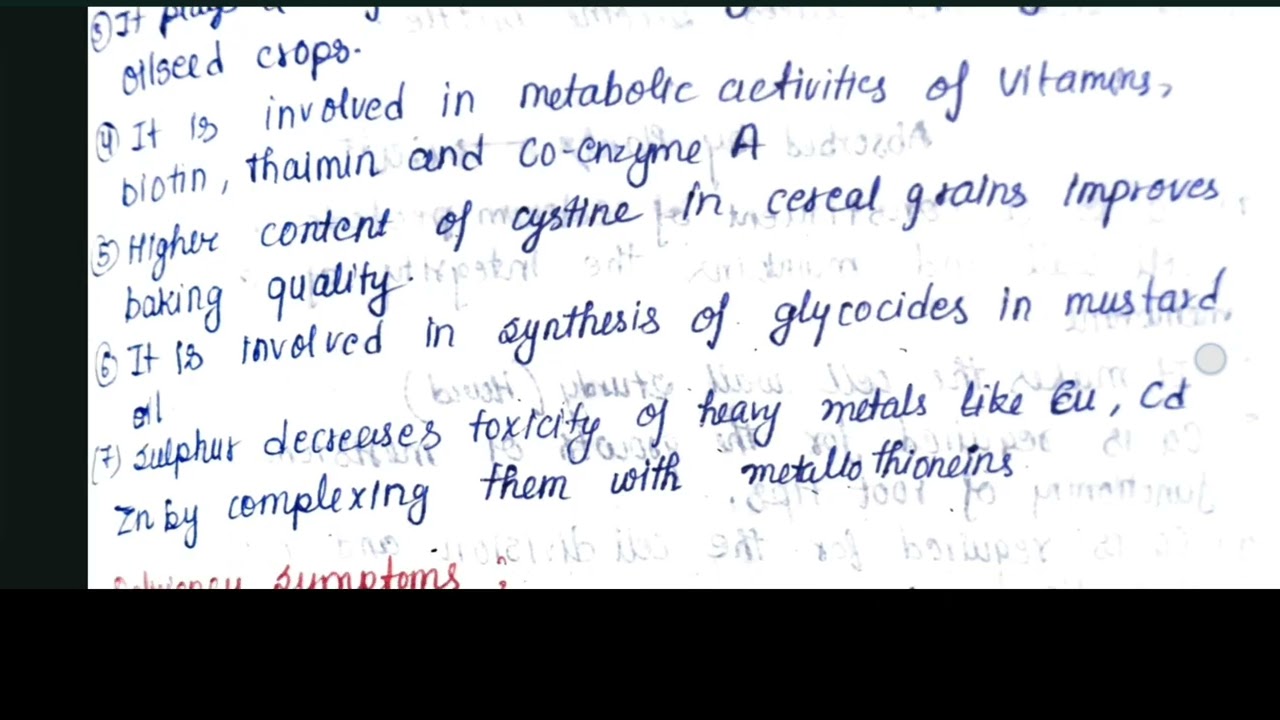 ③ It plays a
oilseed crops.
④ It is involved in metabolic activities of vitamins,
biotin, thaimin and co-enzyme A
⑤ Higher content of cystine in cereal grains improves
baking quality.
⑥ It is involved in synthesis of glycocides in mustard
oil
(7) Sulphur decreases toxicity of heavy metals like Cu, Cd
Zn by complexing them with metallo thioneins
symptoms :